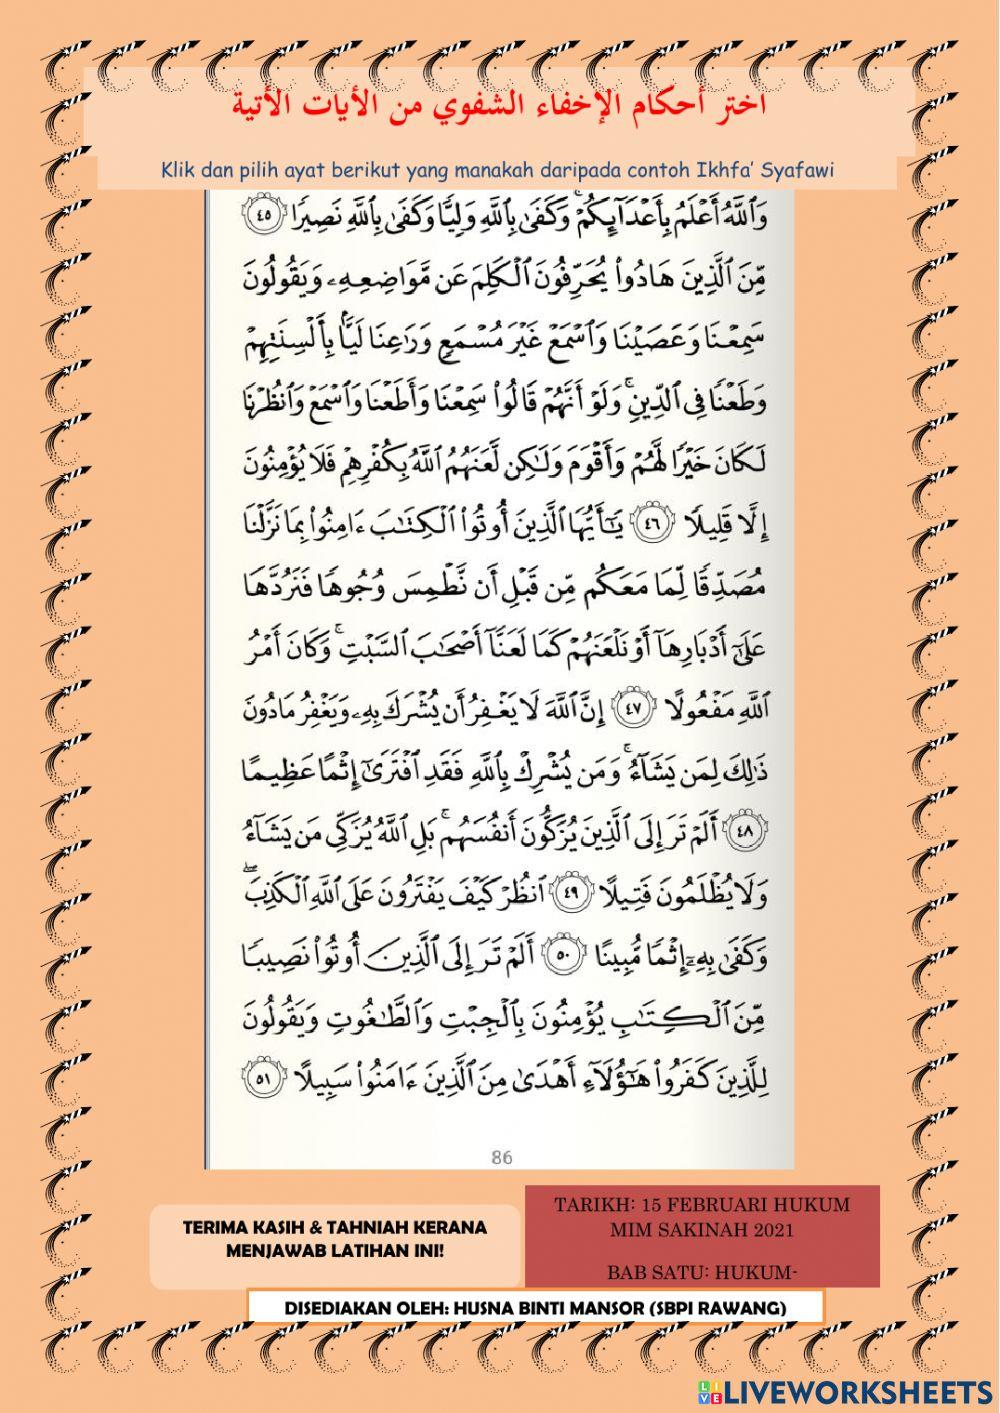 اختر أحكام الإخفاء الشفوي من الأيات الأتية
Klik dan pilih ayat berikut yang manakah daripada contoh Ikhfa’ Syafawi
وَٱللَّهُ أَعْلَمُ بِأَعْدَآئِكُمْ ۚ وَكَفَىٰ بِٱللَّهِ وَلِيًّا وَكَفَىٰ بِٱللَّهِ نَصِيرًا ٤٥
مِّنَ ٱلَّذِينَ هَادُوا۟ يُحَرِّفُونَ ٱلْكَلِمَ عَن مَّوَاضِعِهِۦ وَيَقُولُونَ
سَمِعْنَا وَعَصَيْنَا وَٱسْمَعْ غَيْرَ مُسْمَعٍ وَرَٰعِنَا لَيًّۢا بِأَلْسِنَتِهِمْ
وَطَعْنًا فِى ٱلدِّينِ ۚ وَلَوْ أَنَّهُمْ قَالُوا۟ سَمِعْنَا وَأَطَعْنَا وَٱسْمَعْ وَٱنظُرْنَا
لَكَانَ خَيْرًا لَّهُمْ وَأَقْوَمَ وَلَٰكِن لَّعَنَهُمُ ٱللَّهُ بِكُفْرِهِمْ فَلَا يُؤْمِنُونَ
إِلَّا قَلِيلًا ٤٦ يَٰٓأَيُّهَا ٱلَّذِينَ أُوتُوا۟ ٱلْكِتَٰبَ ءَامِنُوا۟ بِمَا نَزَّلْنَا
مُصَدِّقًا لِّمَا مَعَكُم مِّن قَبْلِ أَن نَّطْمِسَ وُجُوهًا فَنَرُدَّهَا
عَلَىٰٓ أَدْبَارِهَآ أَوْ نَلْعَنَهُمْ كَمَا لَعَنَّآ أَصْحَٰبَ ٱلسَّبْتِ ۚ وَكَانَ أَمْرُ
ٱللَّهِ مَفْعُولًا ٤٧ إِنَّ ٱللَّهَ لَا يَغْفِرُ أَن يُشْرَكَ بِهِۦ وَيَغْفِرُ مَا دُونَ
ذَٰلِكَ لِمَن يَشَآءُ ۚ وَمَن يُشْرِكْ بِٱللَّهِ فَقَدِ ٱفْتَرَىٰٓ إِثْمًا عَظِيمًا
٤٨ أَلَمْ تَرَ إِلَى ٱلَّذِينَ يُزَكُّونَ أَنفُسَهُم ۚ بَلِ ٱللَّهُ يُزَكِّى مَن يَشَآءُ
وَلَا يُظْلَمُونَ فَتِيلًا ٤٩ ٱنظُرْ كَيْفَ يَفْتَرُونَ عَلَى ٱللَّهِ ٱلْكَذِبَ ۖ
وَكَفَىٰ بِهِۦٓ إِثْمًا مُّبِينًا ٥٠ أَلَمْ تَرَ إِلَى ٱلَّذِينَ أُوتُوا۟ نَصِيبًا
مِّنَ ٱلْكِتَٰبِ يُؤْمِنُونَ بِٱلْجِبْتِ وَٱلطَّٰغُوتِ وَيَقُولُونَ
لِلَّذِينَ كَفَرُوا۟ هَٰٓؤُلَآءِ أَهْدَىٰ مِنَ ٱلَّذِينَ ءَامَنُوا۟ سَبِيلًا ٥١
86
TERIMA KASIH & TAHNIAH KERANA
MENJAWAB LATIHAN INI!
TARIKH: 15 FEBRUARI HUKUM
MIM SAKINAH 2021
BAB SATU: HUKUM-
DISEDIAKAN OLEH: HUSNA BINTI MANSOR (SBPI RAWANG)
LIVEWORKSHEETS